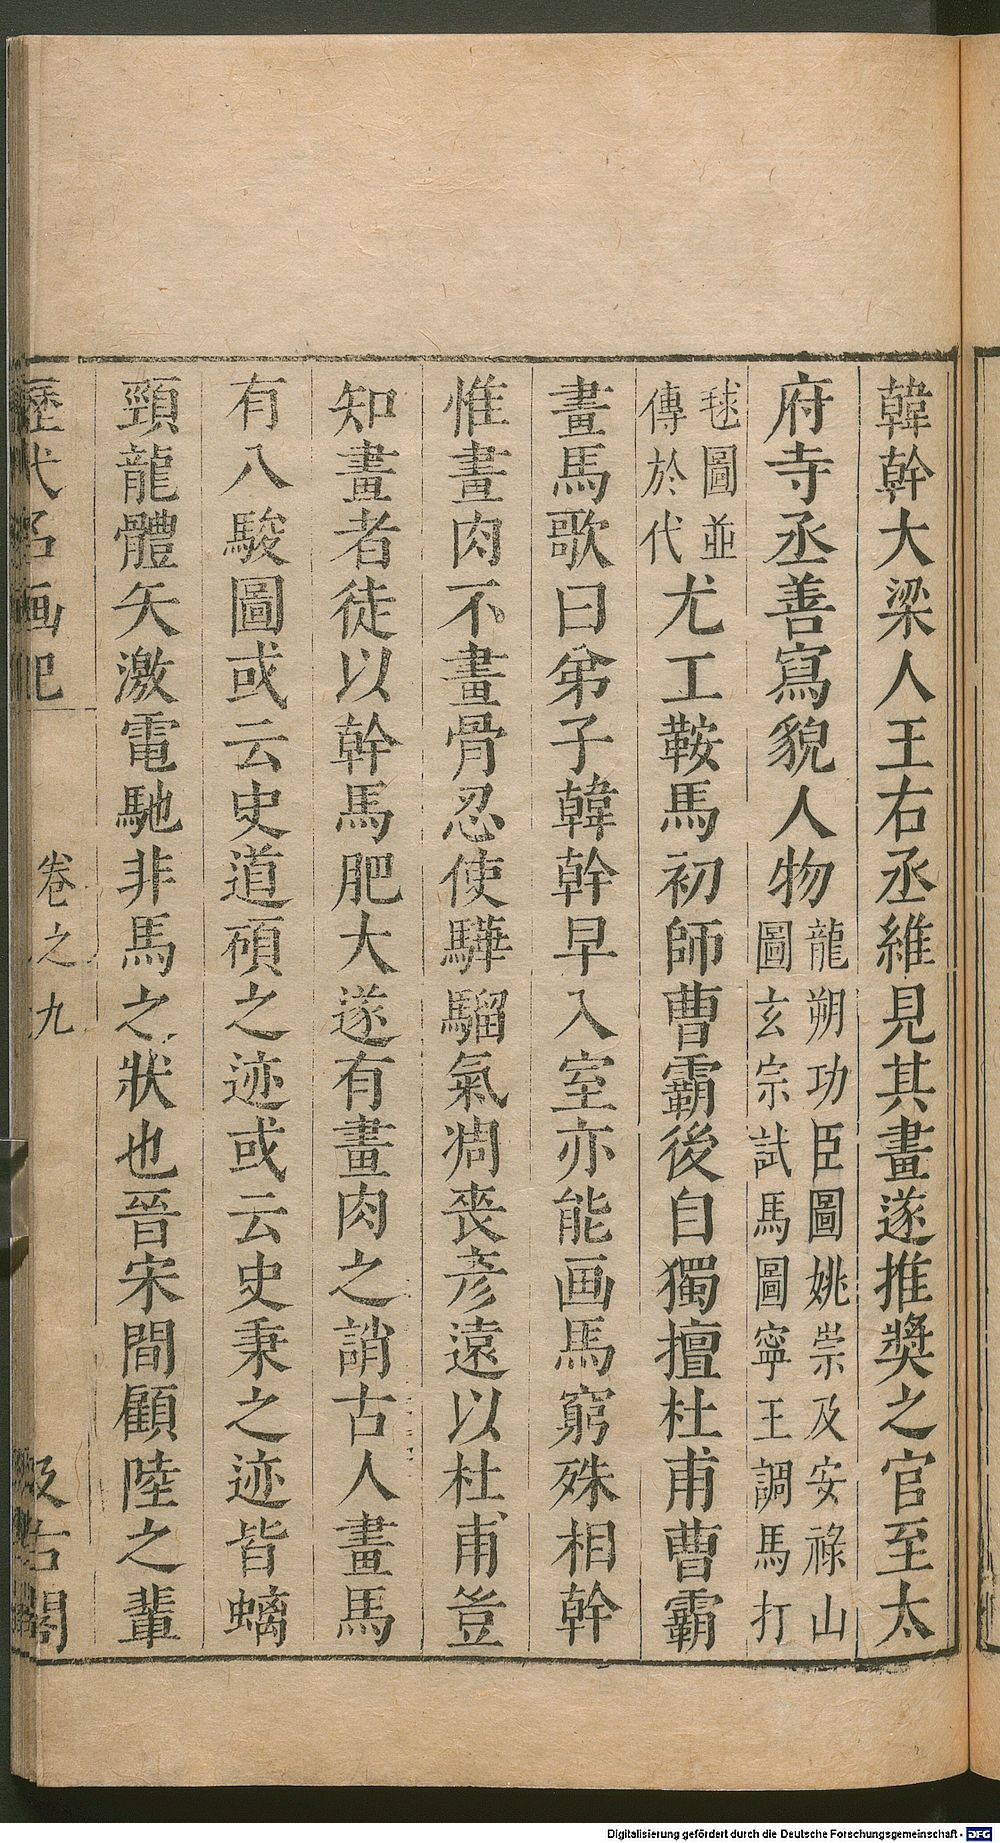 韓幹大梁人王右丞維見其畫遂推奬之官至太
府寺丞善寫貌人物龍朔功臣圖姚崇及安祿山
圖玄宗試馬圖寧王調馬打
毬圖並
傳於代尤工鞍馬初師曹霸後自獨擅杜甫曹霸
畫馬歌曰弟子韓幹早入室亦能画馬窮殊相幹
惟畫肉不畫骨忍使驊騮氣凋喪彥遠以杜甫豈
知畫者徒以幹馬肥大遂有畫肉之誚古人畫馬
有八駿圖或云史道碩之迹或云史秉之迹皆螭
頸龍體矢激電馳非馬之狀也晉宋間顧陸之輩
歷代名画記 卷之九 汲古閣
Digitalisierung gefördert durch die Deutsche Forschungsgemeinschaft - DFG